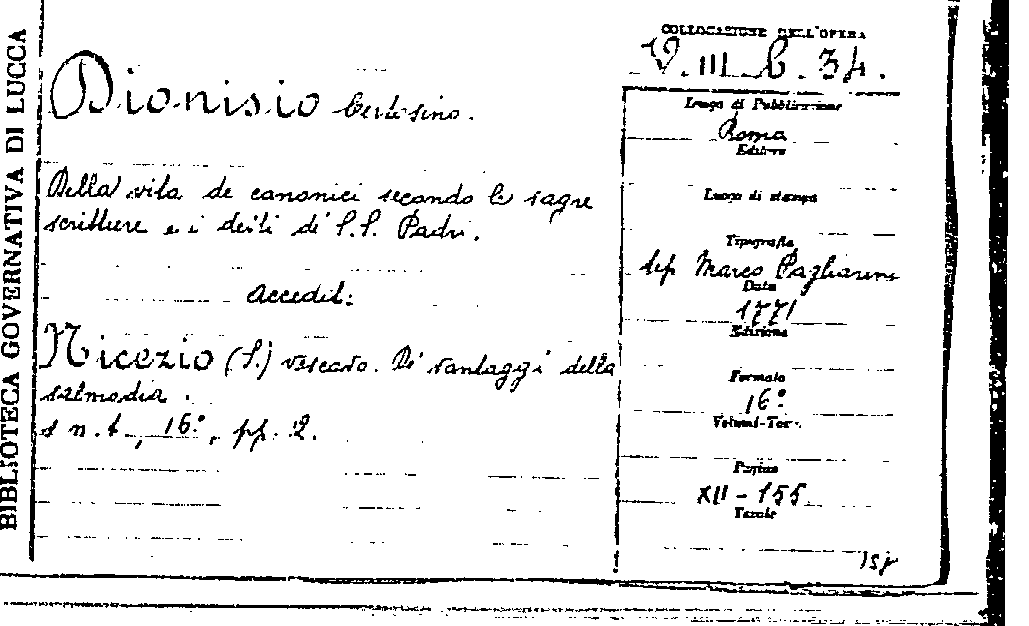 BIBLIOTECA GOVERNATIVA DI LUCCA
Dionisio Certosino.
Della vita de canonici secondo le sagre
scritture e i detti di S.S. Padri.
Accedit:
Nicezio (S.) vescovo. Di vantaggi della
salmodia.
s n.t., 16°, pp. 2.
COLLOCAZIONE DELL'OPERA
V. III. b. 34.
Luogo di Pubblicazione
Roma
Editore
Luogo di stampa
Tipografia
tip. Marco Pagliarini
Data
1771
Edizione
Formato
16°
Volumi-Tor.
Pagine
XII - 155
Tavole